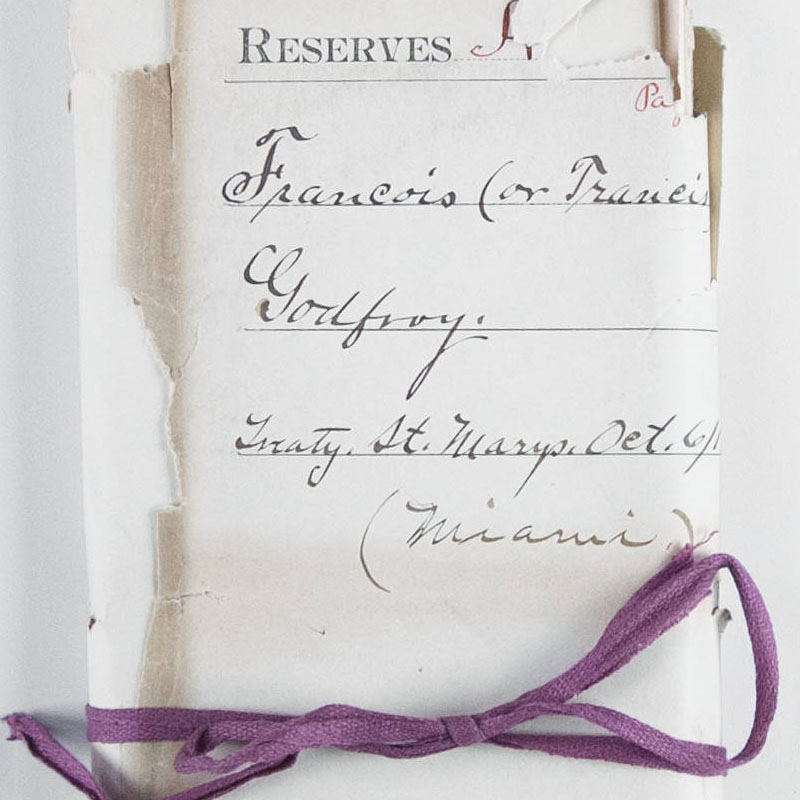 RESERVES
Pa
Francois (or Franci
Godfroy.
Treaty. St. Marys. Oct. 6/1
(Miami.)